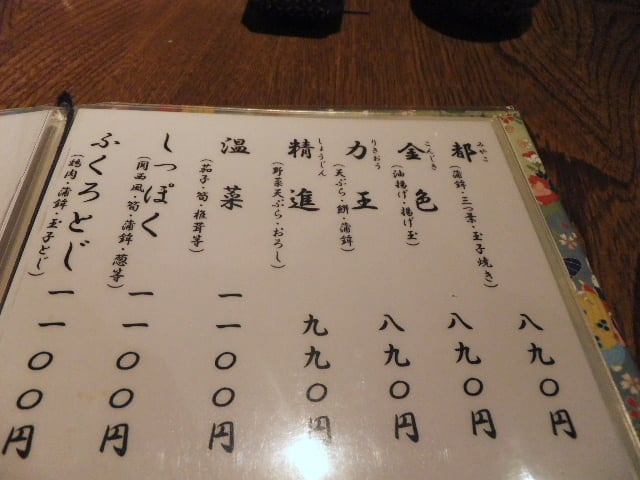 みやこ
都
(蒲鉾・三つ葉・玉子焼き)
八九〇円
こんじき
金色
(油揚げ・揚げ玉)
八九〇円
りきおう
力王
(天ぷら・餅・蒲鉾)
八九〇円
しょうじん
精進
(野菜天ぷら・おろし)
九九〇円
温菜
(茄子・筍・椎茸等)
一一〇〇円
しっぽく
(関西風・筍・蒲鉾・葱等)
一一〇〇円
ふくろとじ
(鶏肉・蒲鉾・玉子とじ)
一一〇〇円